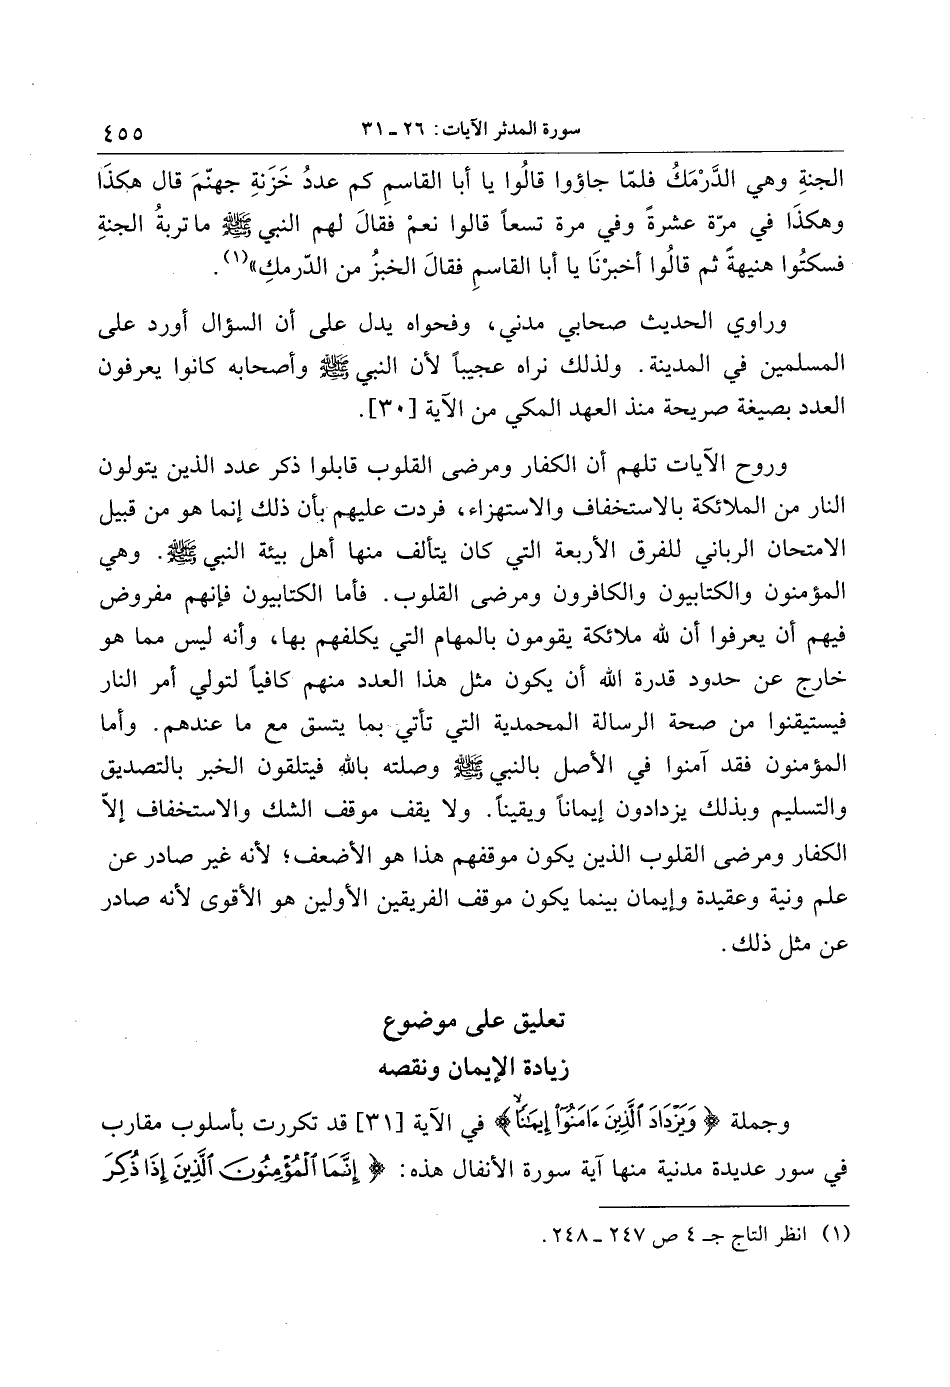 سورة المدثر الآيات: ٢٦ ـ ٣١ ٤٥٥
الجنةِ وهي الدَّرْمَكُ فلمّا جاؤوا قالُوا يا أبا القاسمِ كم عددُ خَزَنةِ جهنّمَ قال هكذَا
وهكذَا في مرّة عشرةً وفي مرة تسعاً قالوا نعمْ فقالَ لهم النبي ﷺ ما تربةُ الجنةِ
فسكتُوا هنيهةً ثم قالُوا أخبرْنَا يا أبا القاسمِ فقالَ الخبزُ من الدّرمكِ»(١).
وراوي الحديث صحابي مدني، وفحواه يدل على أن السؤال أورد على
المسلمين في المدينة. ولذلك نراه عجيباً لأن النبي ﷺ وأصحابه كانوا يعرفون
العدد بصيغة صريحة منذ العهد المكي من الآية [٣٠].
وروح الآيات تلهم أن الكفار ومرضى القلوب قابلوا ذكر عدد الذين يتولون
النار من الملائكة بالاستخفاف والاستهزاء، فردت عليهم بأن ذلك إنما هو من قبيل
الامتحان الرباني للفرق الأربعة التي كان يتألف منها أهل بيئة النبي ﷺ. وهي
المؤمنون والكتابيون والكافرون ومرضى القلوب. فأما الكتابيون فإنهم مفروض
فيهم أن يعرفوا أن لله ملائكة يقومون بالمهام التي يكلفهم بها، وأنه ليس مما هو
خارج عن حدود قدرة الله أن يكون مثل هذا العدد منهم كافياً لتولي أمر النار
فيستيقنوا من صحة الرسالة المحمدية التي تأتي بما يتسق مع ما عندهم. وأما
المؤمنون فقد آمنوا في الأصل بالنبي ﷺ وصلته بالله فيتلقون الخبر بالتصديق
والتسليم وبذلك يزدادون إيماناً ويقيناً. ولا يقف موقف الشك والاستخفاف إلاّ
الكفار ومرضى القلوب الذين يكون موقفهم هذا هو الأضعف؛ لأنه غير صادر عن
علم ونية وعقيدة وإيمان بينما يكون موقف الفريقين الأولين هو الأقوى لأنه صادر
عن مثل ذلك.
تعليق على موضوع
زيادة الإيمان ونقصه
وجملة ﴿ وَيَزْدَادَ ٱلَّذِينَ ءَامَنُوٓاْ إِيمَٰنًاۙ ﴾ في الآية [٣١] قد تكررت بأسلوب مقارب
في سور عديدة مدنية منها آية سورة الأنفال هذه: ﴿ إِنَّمَا ٱلْمُؤْمِنُونَ ٱلَّذِينَ إِذَا ذُكِرَ
(١) انظر التاج جـ ٤ ص ٢٤٧ ـ ٢٤٨.